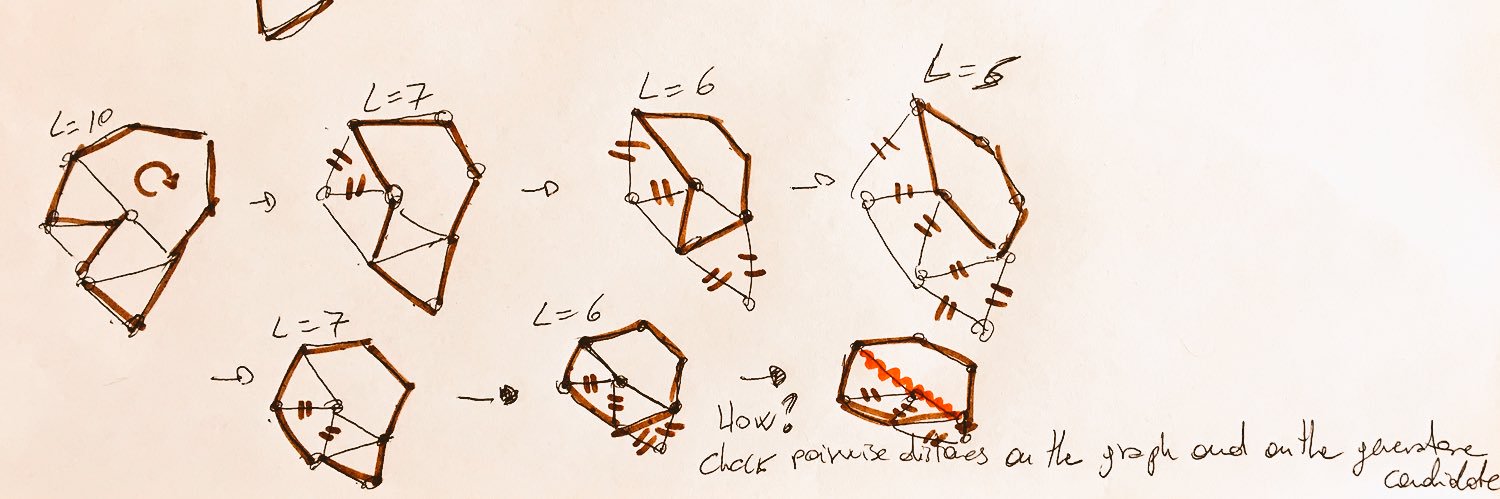 L=10
L=7
L=6
L=5
L=7
L=6
How?
Check pairwise distances on the graph and on the generators
candidate